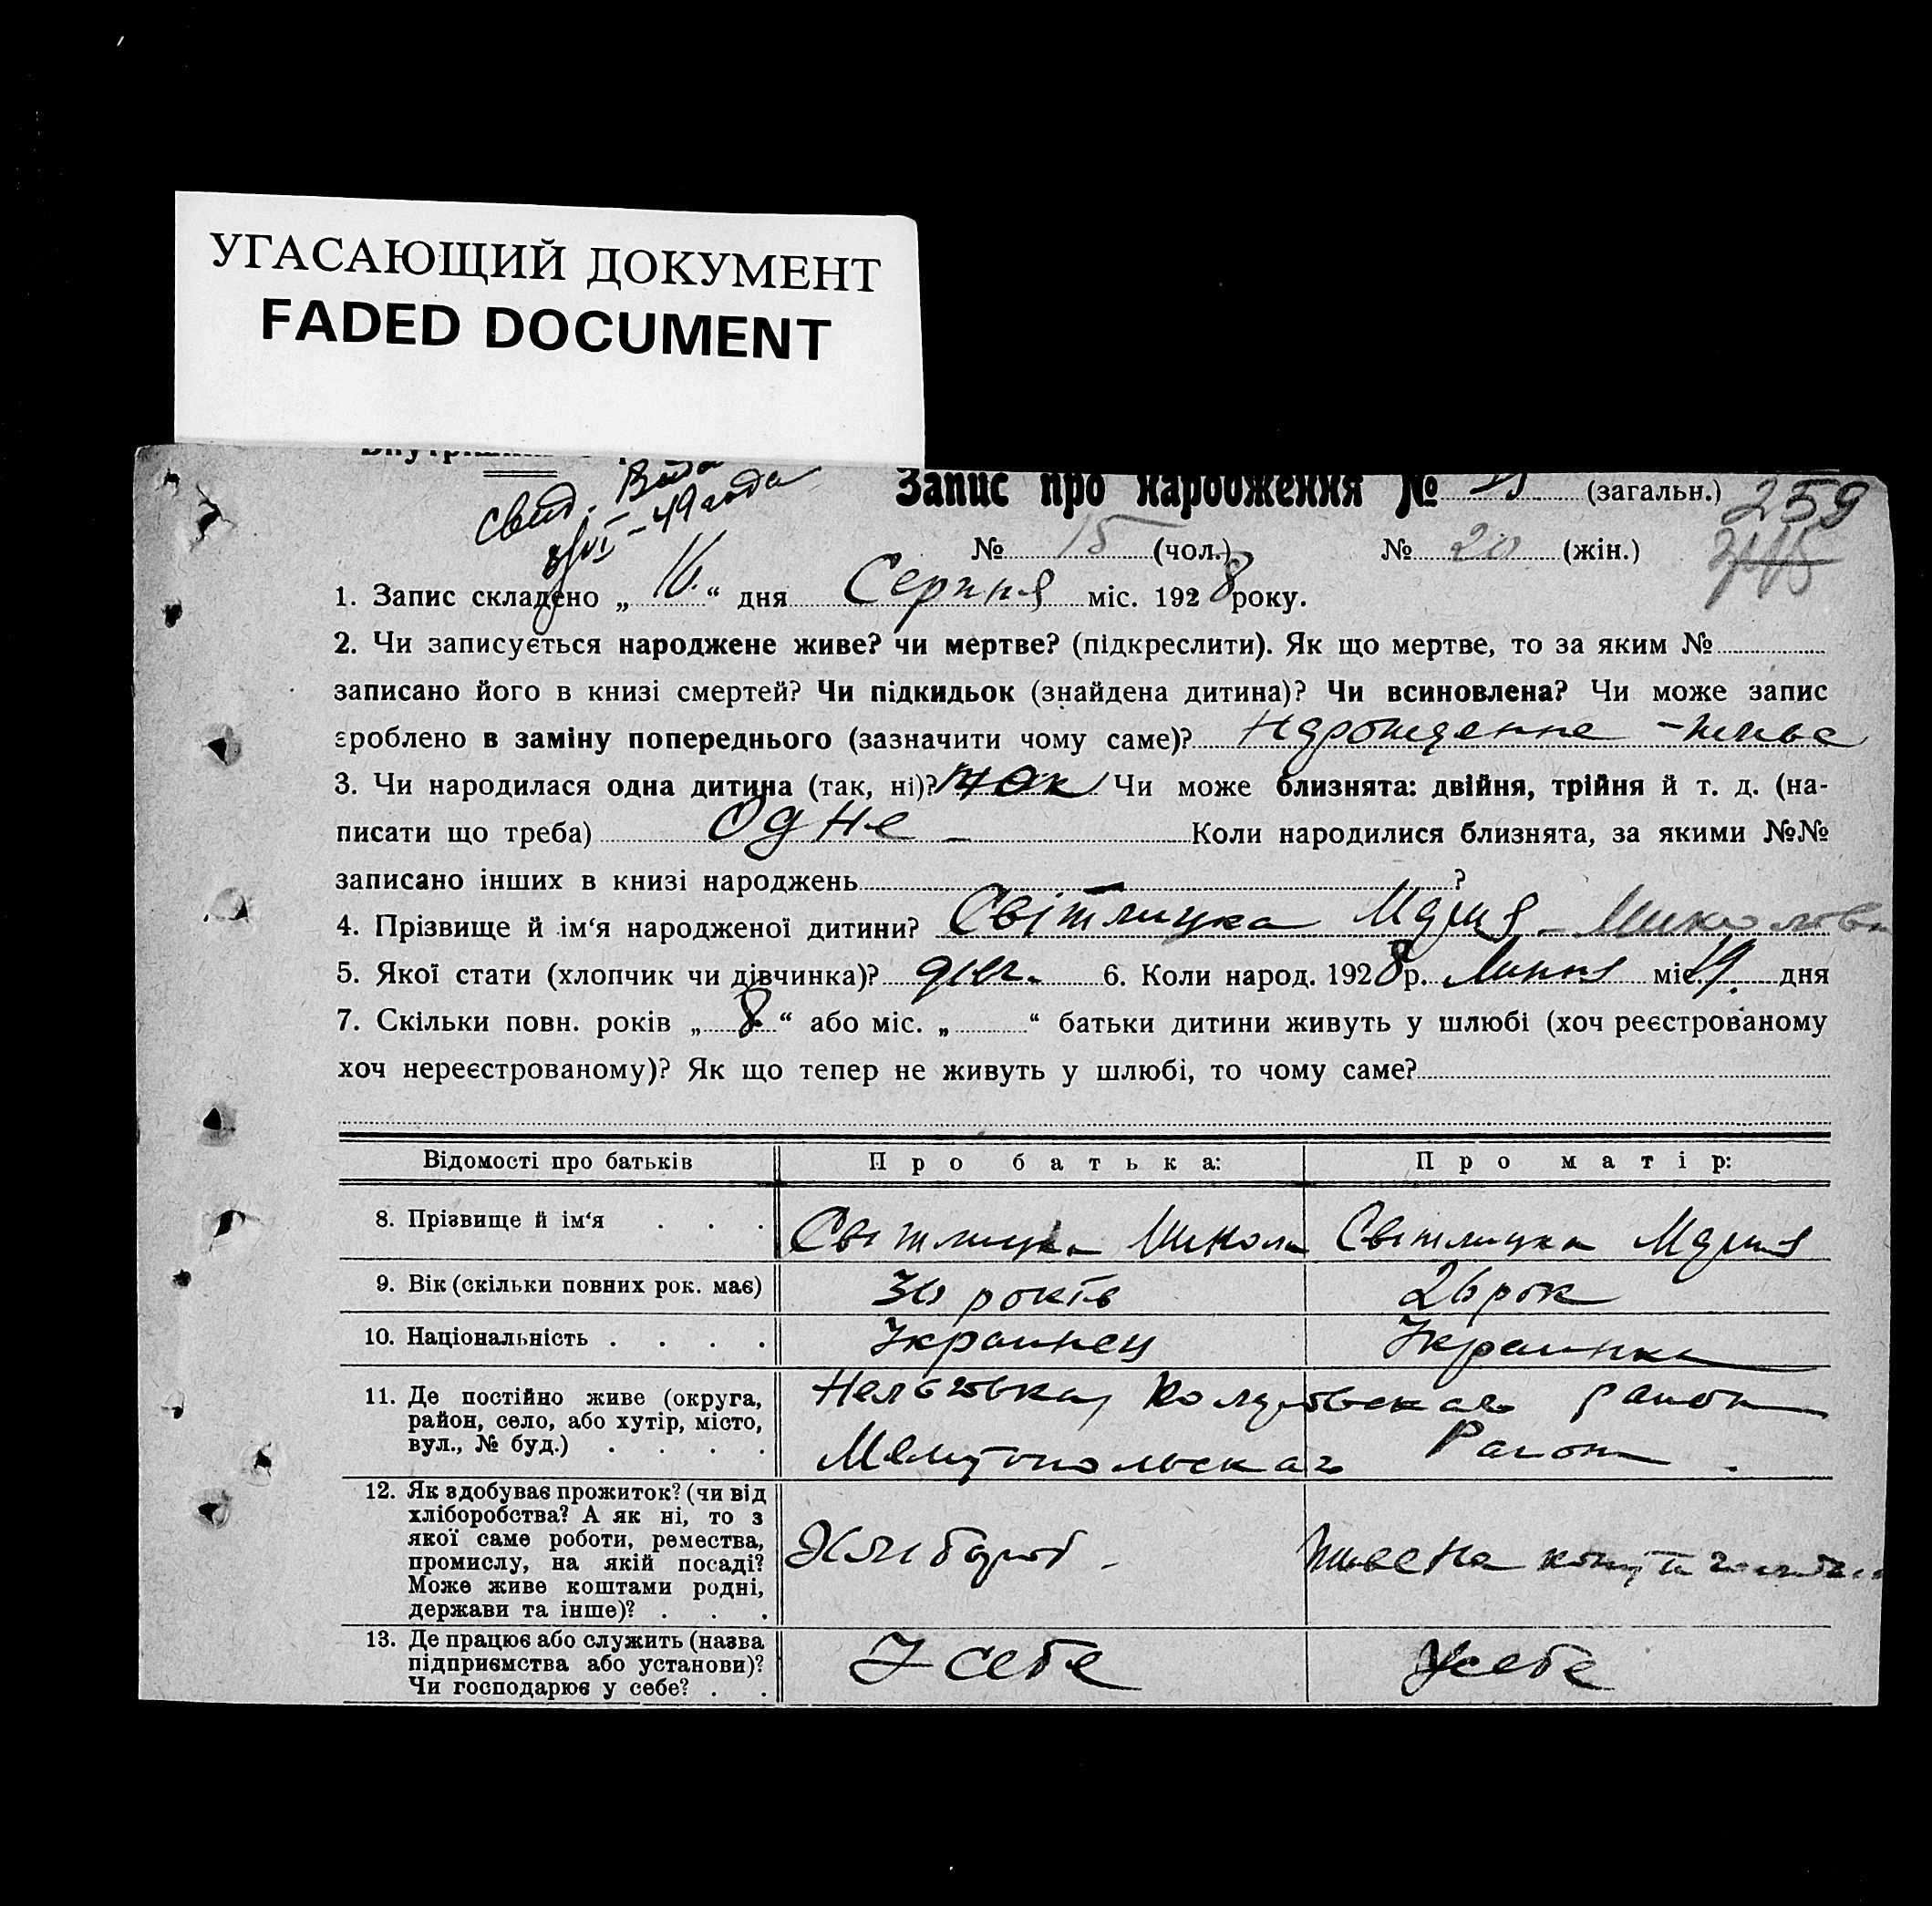 УГАСАЮЩИЙ ДОКУМЕНТ
FADED DOCUMENT
Запис про народження № (загальн.) 259
свид.
49 года
№ 15 (чол.) № 20 (жін.)
1. Запис складено „ 16. “ дня Серпня міс. 1928 року.
2. Чи записується народжене живе? чи мертве? (підкреслити). Як що мертве, то за яким №
записано його в книзі смертей? Чи підкидьок (знайдена дитина)? Чи всиновлена? Чи може запис
зроблено в заміну попереднього (зазначити чому саме)?
3. Чи народилася одна дитина (так, ні)? так Чи може близнята: двійня, трійня й т. д. (на-
писати що треба) Одне — Коли народилися близнята, за якими №№
записано інших в книзі народжень ?
4. Прізвище й ім‘я народженої дитини? Світлицка Мария
5. Якої стати (хлопчик чи дівчинка)? 6. Коли народ. 1928 р. міс. 19. дня
7. Скільки повн. років „ 8 “ або міс. „ “ батьки дитини живуть у шлюбі (хоч реєстрованому
хоч нереєстрованому)? Як що тепер не живуть у шлюбі, то чому саме?
Відомості про батьків Про батька: Про матір:
8. Прізвище й ім‘я . . . Світлицка Микола Світлицка Мария
9. Вік (скільки повних рок. має) років 26 рок
10. Національність . . . . Украинец Украинка
11. Де постійно живе (округа,
район, село, або хутір, місто,
вул., № буд.) . . . . район
Район
12. Як здобуває прожиток? (чи від
хліборобства? А як ні, то з
якої саме роботи, ремества,
промислу, на якій посаді?
Може живе коштами родні,
держави та інше)? . . . живе на
13. Де працює або служить (назва
підприємства або установи)?
Чи господарює у себе? . . У себе У себе